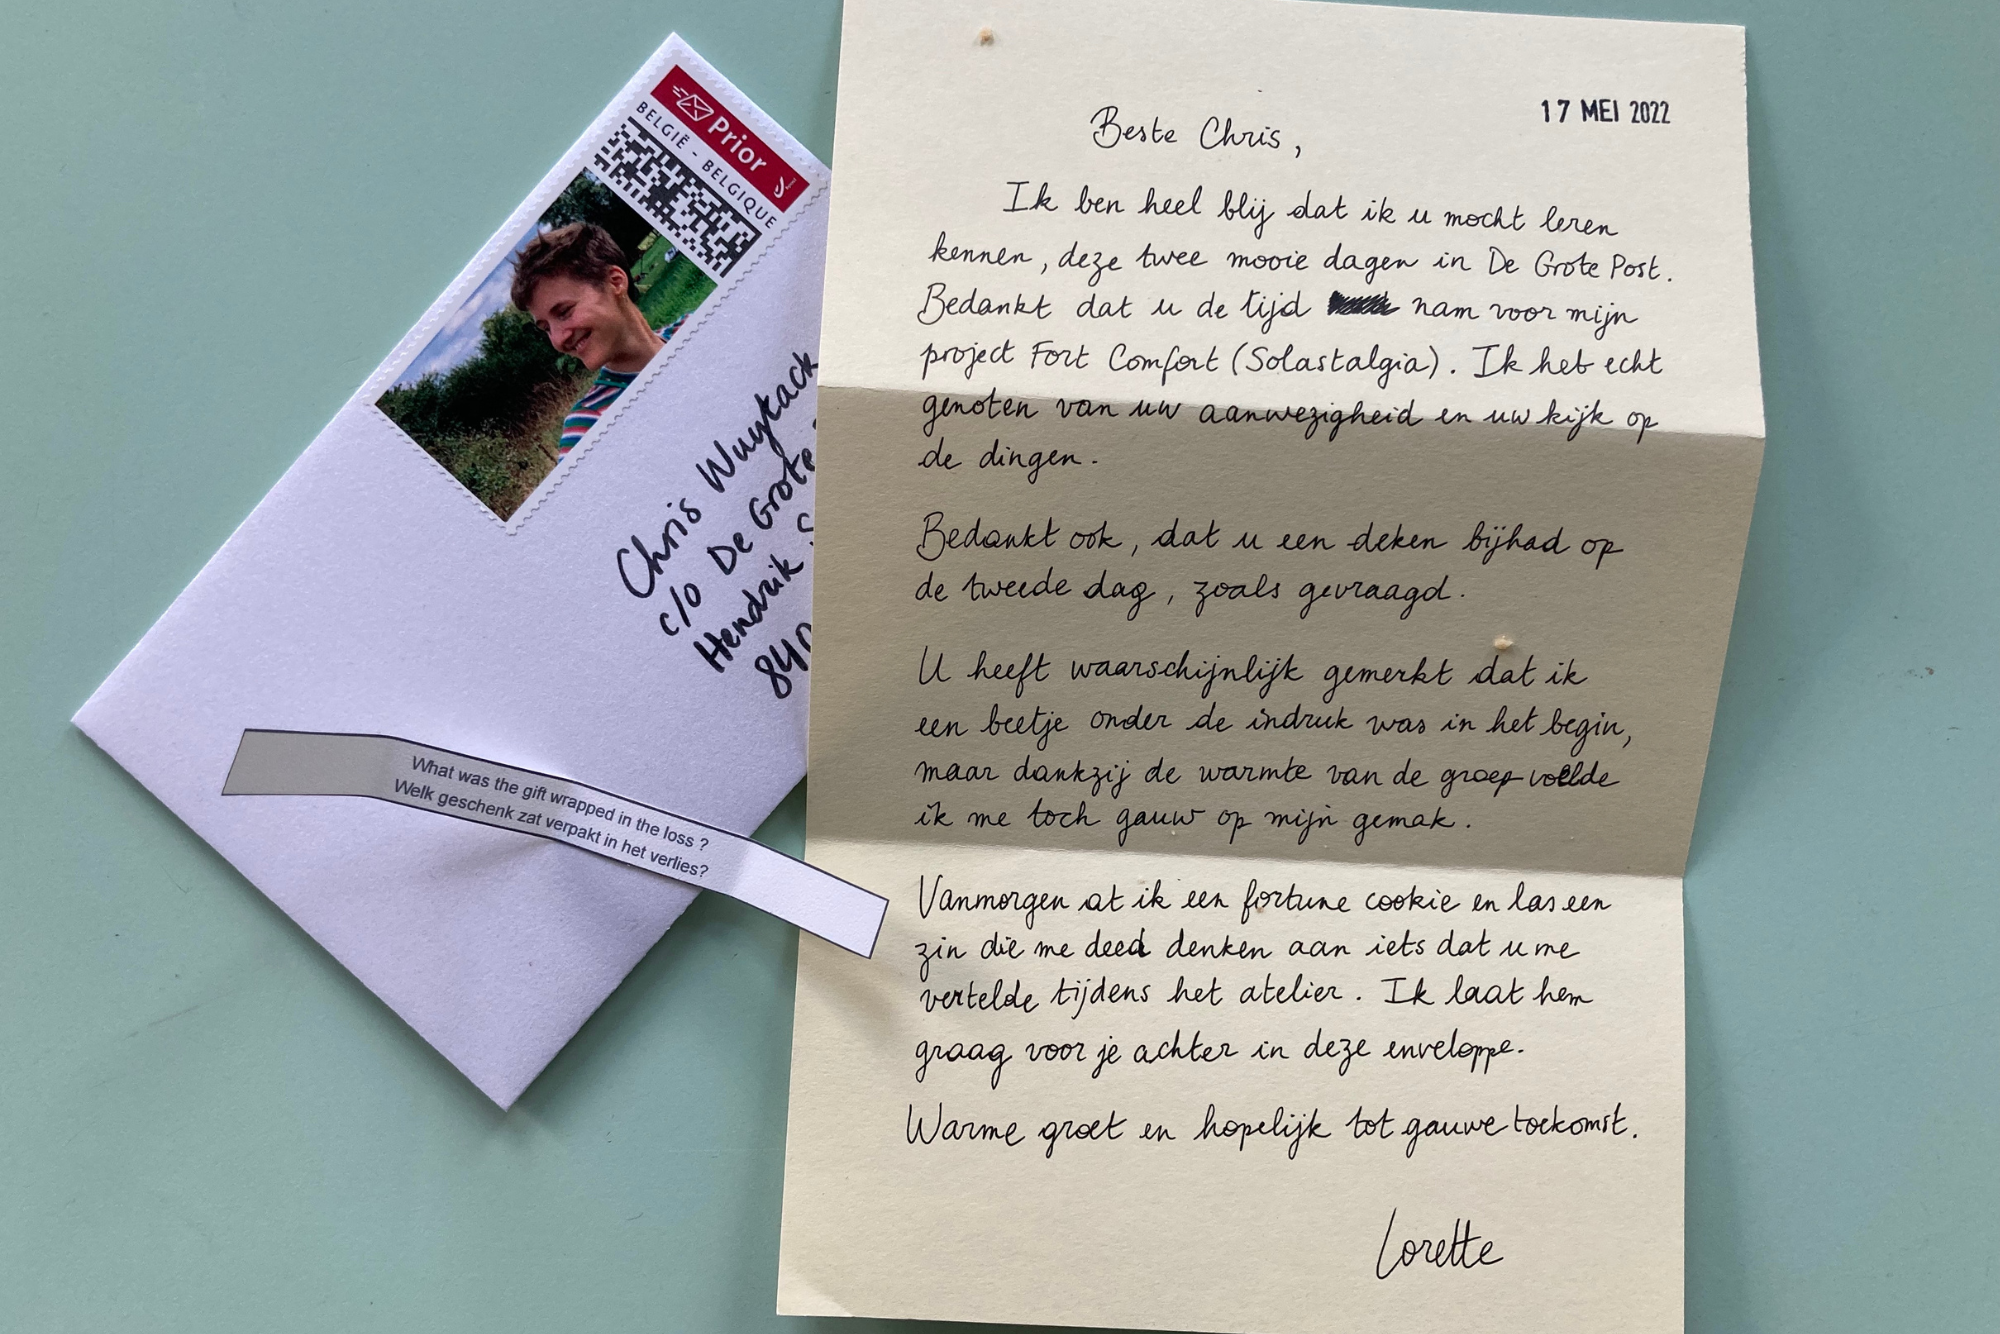 Prior
BELGIË - BELGIQUE
Chris Wuytack
c/o De Grote
Hendrik
840
What was the gift wrapped in the loss ?
Welk geschenk zat verpakt in het verlies?
17 MEI 2022
Beste Chris,
Ik ben heel blij dat ik u mocht leren
kennen, deze twee mooie dagen in De Grote Post.
Bedankt dat u de tijd nam voor mijn
project Fort Comfort (Solastalgia). Ik heb echt
genoten van uw aanwezigheid en uw kijk op
de dingen.
Bedankt ook, dat u een deken bijhad op
de tweede dag, zoals gevraagd.
U heeft waarschijnlijk gemerkt dat ik
een beetje onder de indruk was in het begin,
maar dankzij de warmte van de groep voelde
ik me toch gauw op mijn gemak.
Vanmorgen at ik een fortune cookie en las een
zin die me deed denken aan iets dat u me
vertelde tijdens het atelier. Ik laat hem
graag voor je achter in deze enveloppe.
Warme groet en hopelijk tot gauwe toekomst.
Lorette